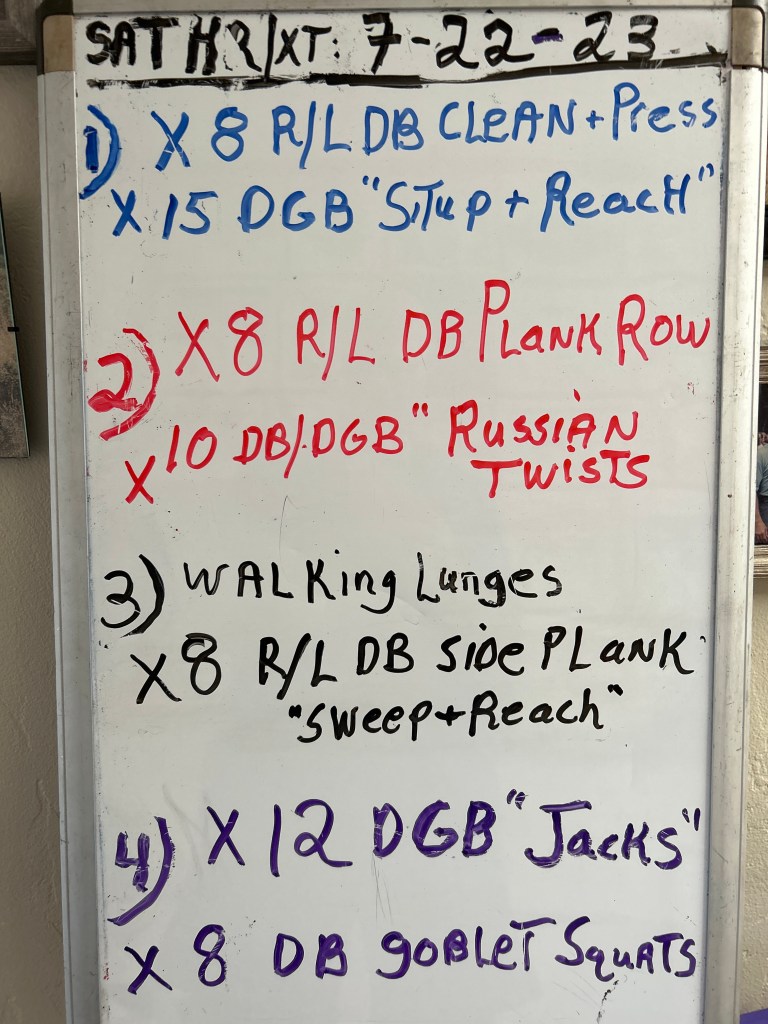 SAT HR/XT: 7-22-23
1) X 8 R/L DB CLEAN + Press
X 15 DGB "SiTup + ReacH"
2) X8 R/L DB PLANK ROW
X 10 DB/DGB "RUSSIAN
TWISTS
3) WALKing Lunges
X8 R/L DB SiDe PLANK
"Sweep + Reach"
4) X 12 DGB "JacKs"
X 8 DB goBLeT SquATS